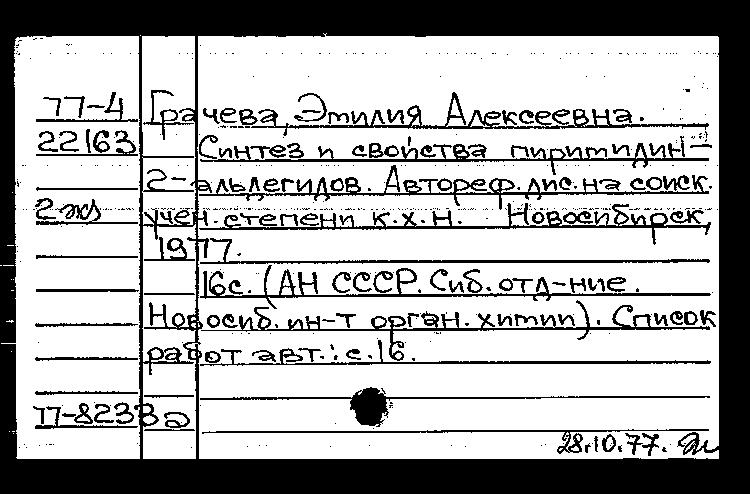 77-4 Грачева, Эмилия Алексеевна.
22163 Синтез и свойства пиримидин-
2-альдегидов. Автореф. дис. на соиск.
2 экз учен. степени к.х.н. Новосибирск,
1977.
16с. (АН СССР. Сиб. отд-ние.
Новосиб. ин-т орган. химии). Список
работ авт.: с.16.
П-8233а
28.10.77.